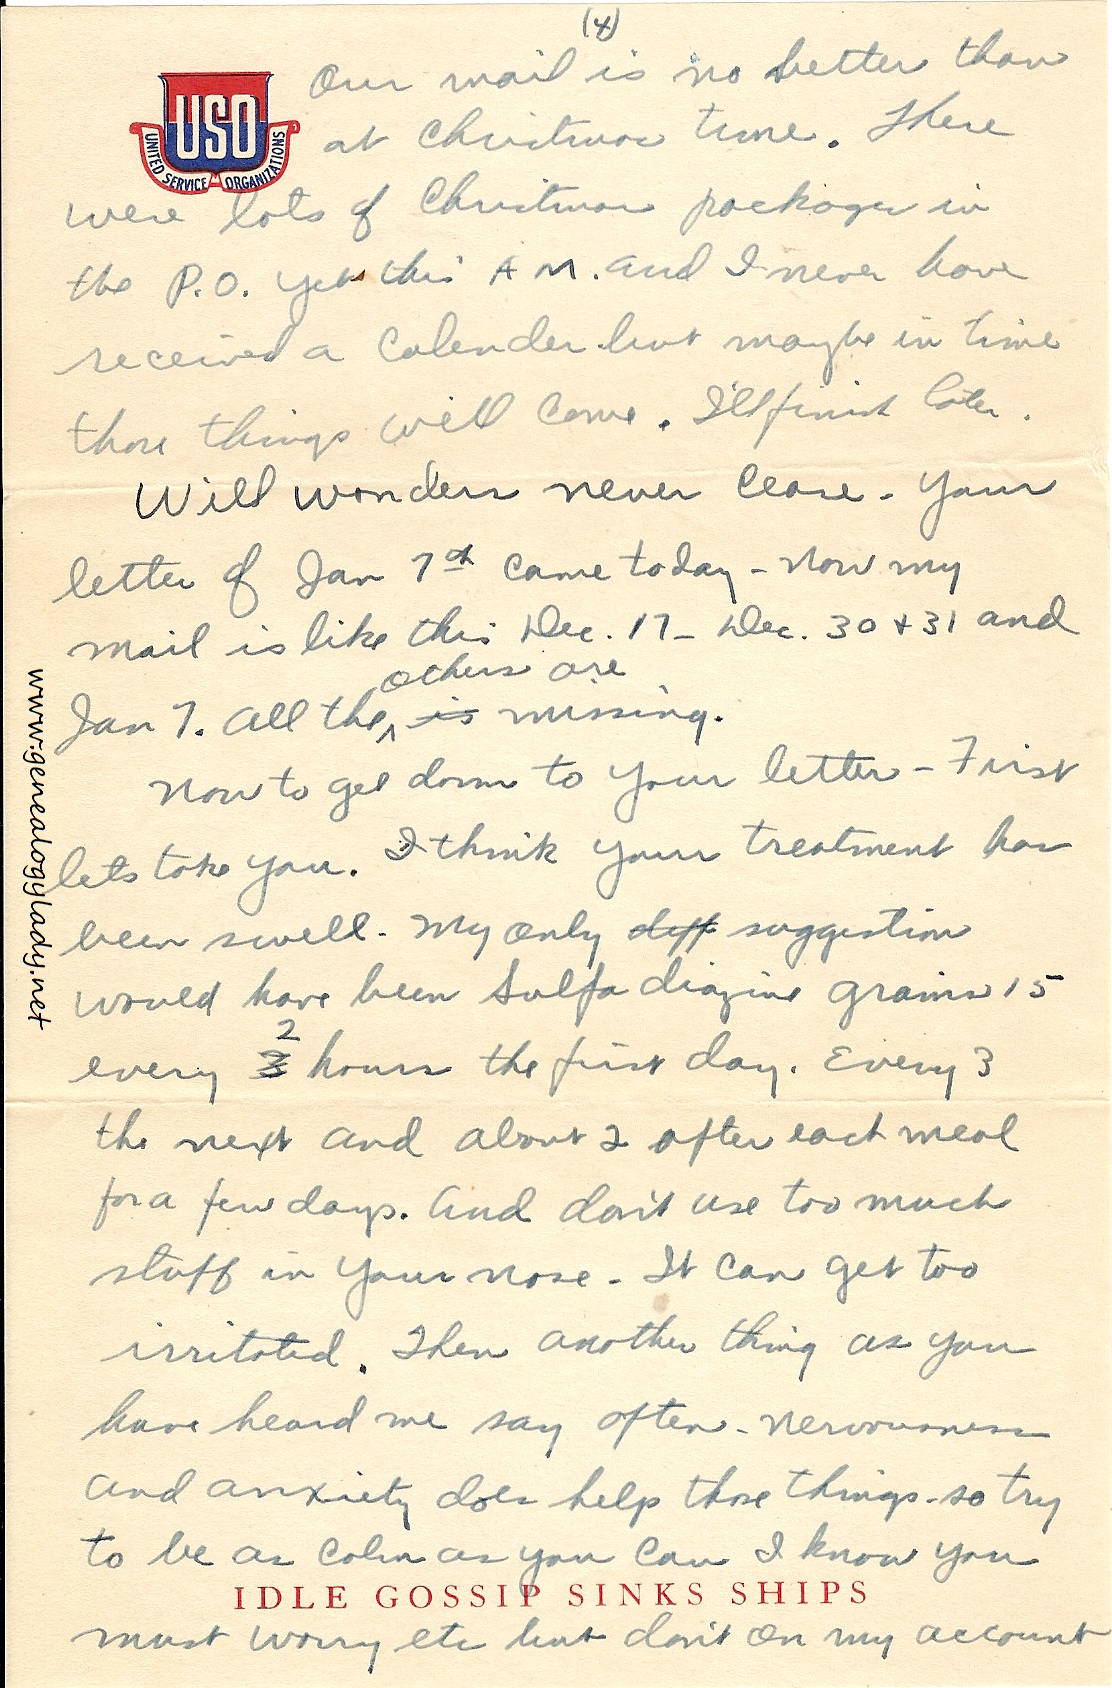 (4)
Our mail is no better than
USO
UNITED SERVICE ORGANIZATIONS
at Christmas time. There
were lots of Christmas packages in
the P.O. yet this A M. and I never have
received a Calender but maybe in time
those things will come. I'll finish later.
Will wonders never cease - Your
letter of Jan 7th came today - Now my
mail is like this Dec. 17 - Dec. 30 + 31 and
others are
Jan 7. All the ^ is missing.
Now to get down to your letter - First
lets take you. I think your treatment has
been swell. My only diff suggestion
would have been Sulfa diazine grains 15
2
every 3 hours the first day. Every 3
the next and about 2 after each meal
for a few days. And don't use too much
stuff in your nose - It can get too
irritated. Then another thing as you
have heard me say often - nervousness
and anxiety does help those things - so try
to be as calm as you can I know you
IDLE GOSSIP SINKS SHIPS
must worry etc but don't on my account
www.genealogylady.net